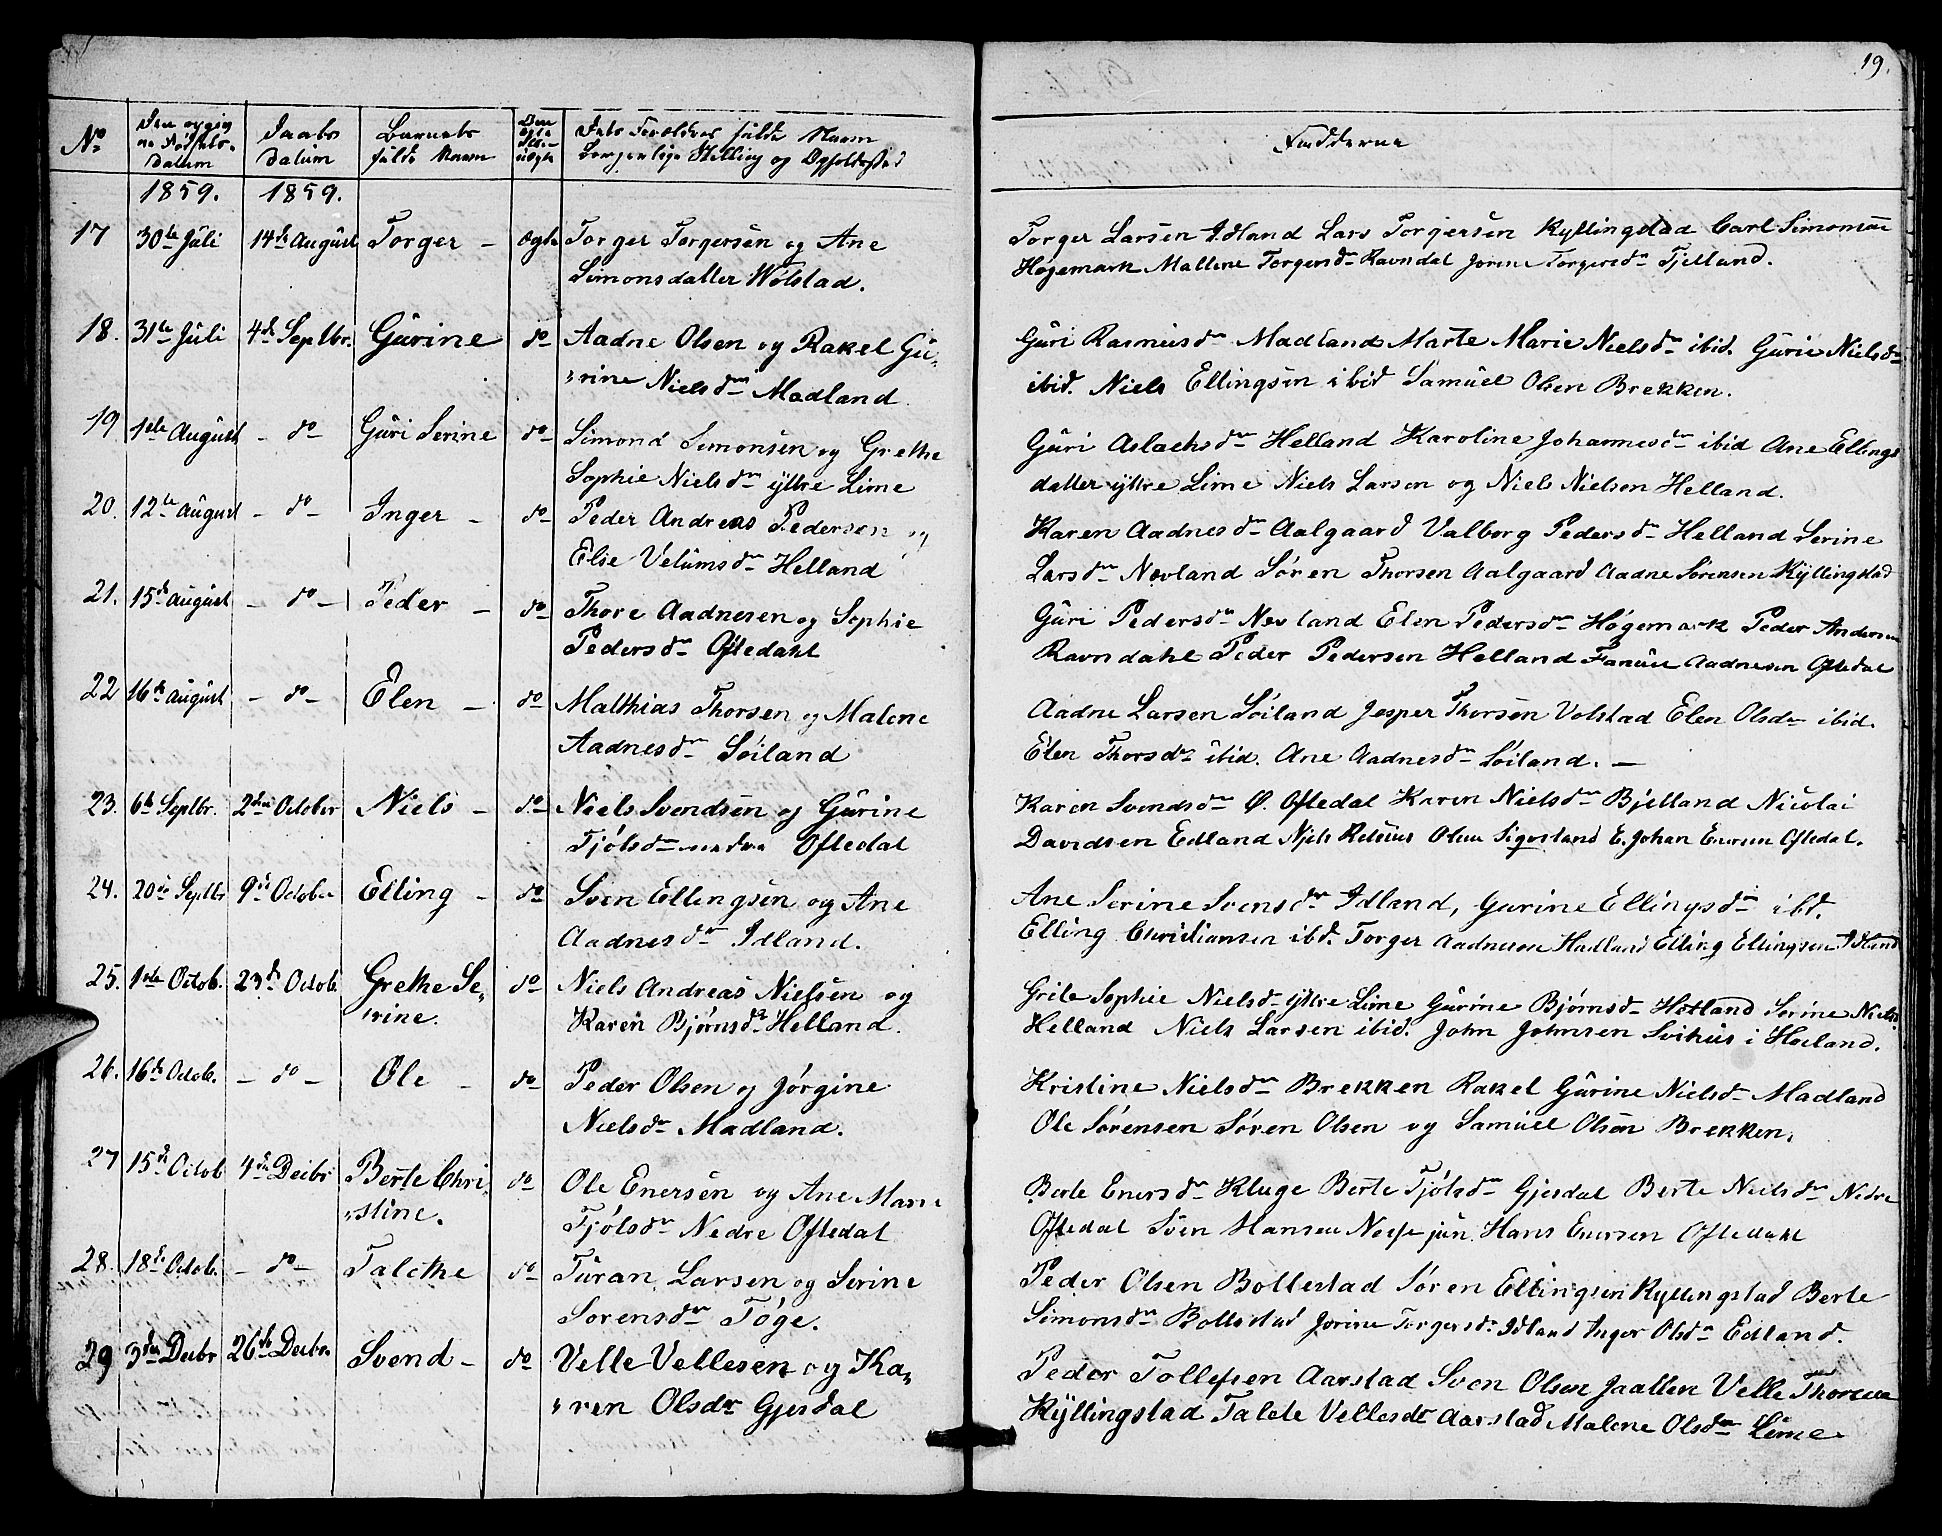 19.
No Den og sig na Fødsels-Datum Daabs Datum Barnets fulde Navn Om ægte eller uægte Dets Forældres fulde Navn borgerlige Stilling og Opholdssted Fadderne
1859. 1859.
17 30te Juli 14de August Torger - Ægte Torger Torgersen og Ane
Simonsdatter Wølstad.
Torger Larsen Idland Lars Torgersen Kyllingstad Carl Simonsen
Høgemark Mallene Torgersdr Ravndal Jorine Torgersdr Tjelland.
18. 31te Juli 4de Septbr. Gurine do Aadne Olsen og Rakel Gu-
rine Nielsdr Madland
Guri Rasmusdr Madland Marte Marie Nielsdr ibid. Gurie Nielsdr
ibid. Niels Ellingsen ibid Samuel Olsen Brekken.
19 1ste August - do - Guri Serine do Simond Simonsen og Grethe
Sophie Nielsdr ytre Lime
Guri Aslachsdr Helland Karoline Johannesdr ibid Ane Ellings
datter ytre Lime Niels Larsen og Niels Nielsen Helland.
20. 12te August - do - Inger - do Peder Andreas Pedersen og
Elie Velumsdr Helland
Karen Aadnesdr Aalgaard Valborg Pedersdr Helland Serine
Larsdr Nevland Søren Thorsen Aalgaard Aadne Sørensen Kyllingstad
21. 15de August - do - Peder - do Thore Aadnesen og Sophie
Pedersdr Oftedahl
Guri Pedersdr Nevland Elen Pedersdr Høgemark Peder Andersen
Ravndahl Peder Pedersen Helland Aadnesen Oftedal
22 16de August - do - Elen - do Matthias Thorsen og Malene
Aadnesdr Søiland
Aadne Larsen Søiland Jesper Thorsen Volstad Elen Olsdr ibid.
Elen Thorsdr ibid. Ane Aadnesdr Søiland. -
23. 6te Septbr. 2den October Niels - do Niels Svendsen og Gurine
Tjølsdr nedre Oftedal
Karen Svendsdr Ø. Oftedal Karen Nielsdr Bjelland Nicolai
Davidsen Edland Niels Olsen E. Johan Enersen Oftedal.
24. 20de Septbr 9de October Elling - do Sven Ellingsen og Ane
Aadnesdr Idland.
Ane Serine Svensdr Idland, Gurine Ellingsdr ibd.
Elling Christiansen ibd. Torger Aadnesen Madland Elling Ellingsen Idland
25. 1ste Octob. 23de Octob. Grethe Se- do Niels Andreas Nielsen og
rine. Karen Bjørnsdr Helland.
Grite Sophie Nielsdr ytre Lime Gurine Bjørnsdr Hetland Serine Nielsdr
Helland Niels Larsen ibid. John Johnsen Svihus i Høiland.
26. 16de Octob. - do - Ole - do Peder Olsen og Jørgine
Nielsdr Madland.
Kristine Nielsdr Brekken Rakel Gurine Nielsdr Madland
Ole Sørensen Søren Olsen og Samuel Olsen Brekken.
27 15de Octob 4de Decbr Berte Chri- do Ole Enersen og Ane Marie
stine. Tjølsdr Nedre Oftedal
Berte Enersdr Kluge Berte Tjølsdr Gjesdal Berte Nielsdr Nedre
Oftedal Sven Hansen Hans Enersen Oftedahl
28. 18de Octob. - do - Talethe do Turan Larsen og Serine
Sørensdr Tøge.
Peder Olsen Bollestad Søren Ellingsen Kyllingstad Berte
Simonsdr Bollestad Jorine Torgersdr Idland Inger Olsdr Edland.
29 3den Decbr 26de Decbr Svend - do Velle Vellesen og Ka-
ren Olsdr Gjesdal
Peder Tollefsen Aarstad Sven Olsen Jaatten Velle Thorsen
Kyllingstad Talete Vellesdr Aarstad Malene Olsdr Lime